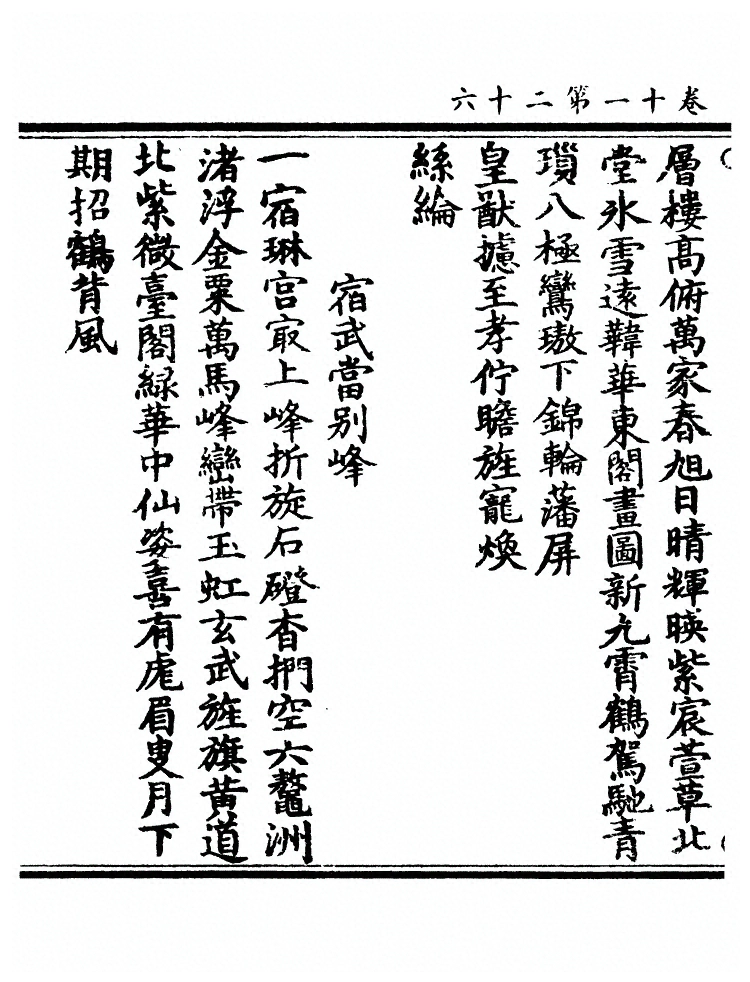 卷十一第二十六
層樓高俯萬家春旭日晴輝暎紫宸萱草北
堂氷雪遠韡華東閣畫圖新九霄鶴駕馳青
瑣八極鸞璈下錦輪藩屏
皇猷攄至孝佇瞻旌寵煥
絲綸
宿武當別峰
一宿琳宫㝡上峰折旋石磴杳捫空六鼇洲
渚浮金粟萬馬峰巒帶玉虹玄武旌旗黄道
北紫微臺閣緑華中仙姿喜有虎眉叟月下
期招鶴背風